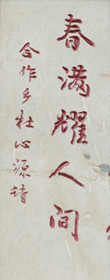 春满耀人间
合作乡社心源诗